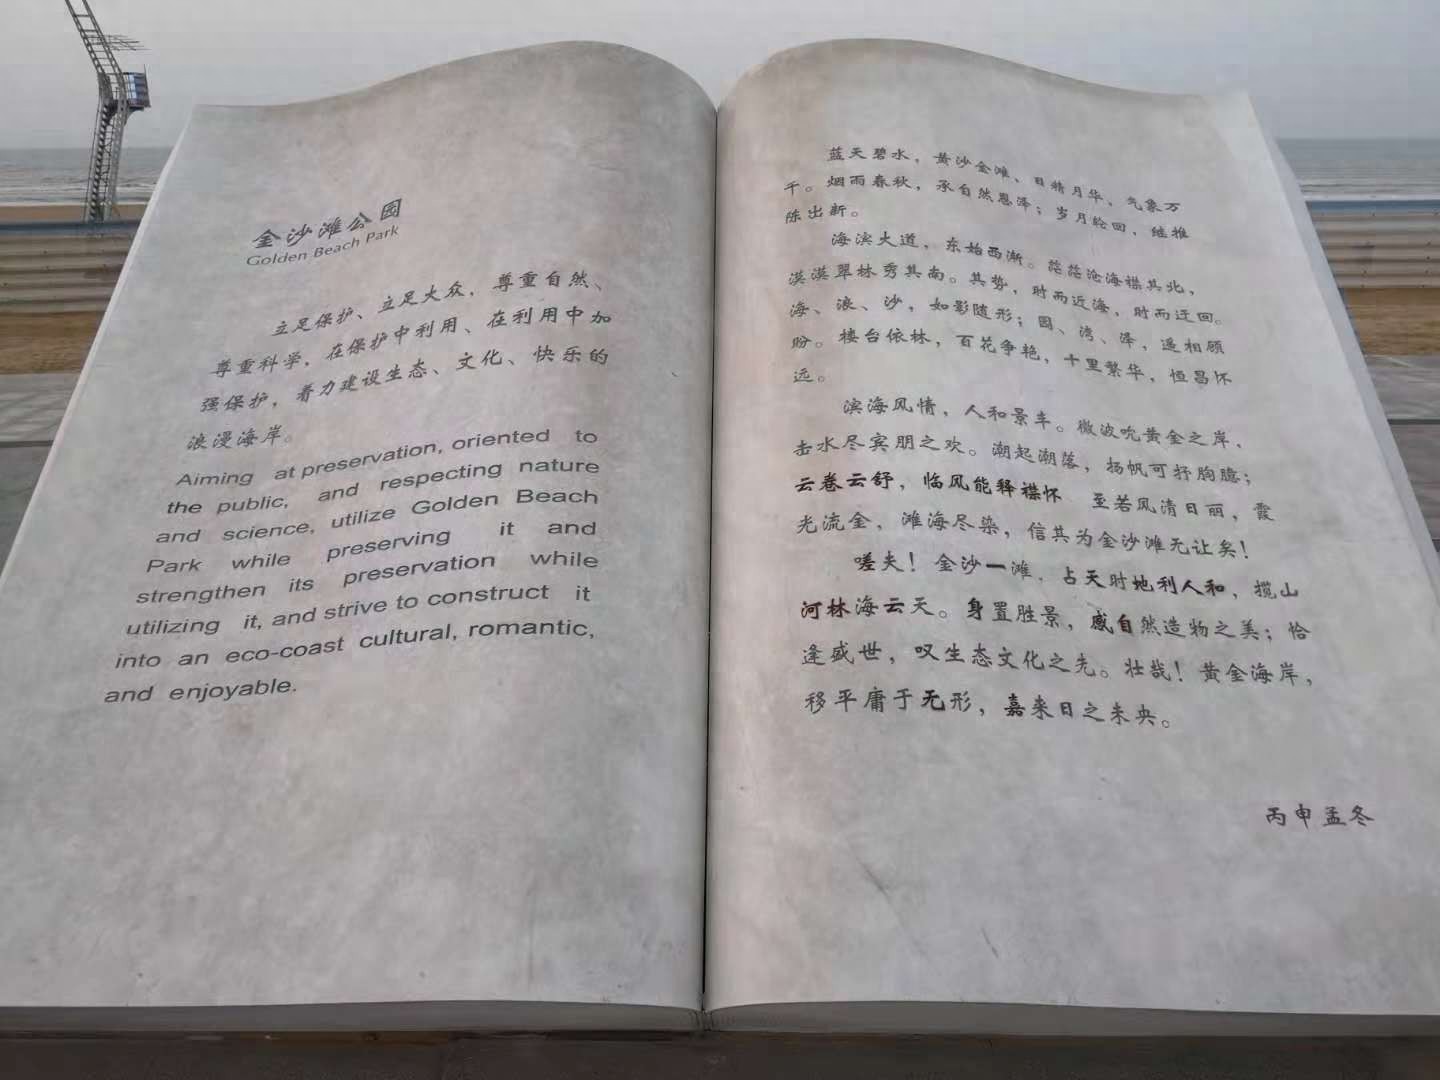 金沙滩公园
Golden Beach Park
立足保护、立足大众，尊重自然、
尊重科学，在保护中利用、在利用中加
强保护，着力建设生态、文化、快乐的
浪漫海岸。
Aiming at preservation, oriented to
the public, and respecting nature
and science, utilize Golden Beach
Park while preserving it and
strengthen its preservation while
utilizing it, and strive to construct it
into an eco-coast cultural, romantic,
and enjoyable.
蓝天碧水，黄沙金滩、日精月华、气象万
千。烟雨春秋，承自然恩泽；岁月轮回，继推
陈出新。
海滨大道，东始西渐。茫茫沧海襟其北，
漠漠翠林秀其南。其势，时而近海，时而迂回。
海、浪、沙，如影随形；园、湾、泽，遥相顾
盼。楼台依林，百花争艳，十里繁华，恒昌怀
远。
滨海风情，人和景丰。微波吮黄金之岸，
击水尽宾朋之欢。潮起潮落，扬帆可抒胸臆；
云卷云舒，临风能释襟怀 至若风清日丽，霞
光流金，滩海尽染，信其为金沙滩无让矣！
嗟夫！金沙一滩，占天时地利人和，揽山
河林海云天。身置胜景，感自然造物之美；恰
逢盛世，叹生态文化之先。壮哉！黄金海岸，
移平庸于无形，嘉来日之未央。
丙申孟冬